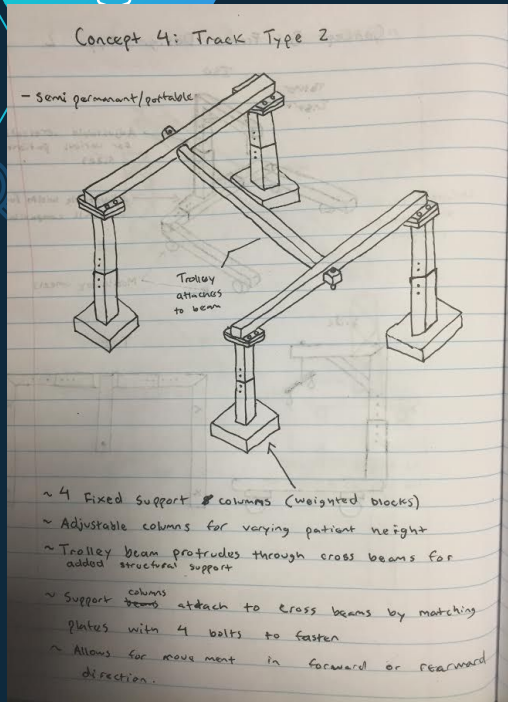 Concept 4: Track Type 2
- semi permanant/portable
Trolley
attaches
to beam
~ 4 Fixed support columns (weighted blocks)
~ Adjustable columns for varying patient height
~ Trolley beam protrudes through cross beams for
added structural support
~ Support columns beams attach to cross beams by matching
plates with 4 bolts to fasten
~ Allows for movement in forward or rearward
direction.